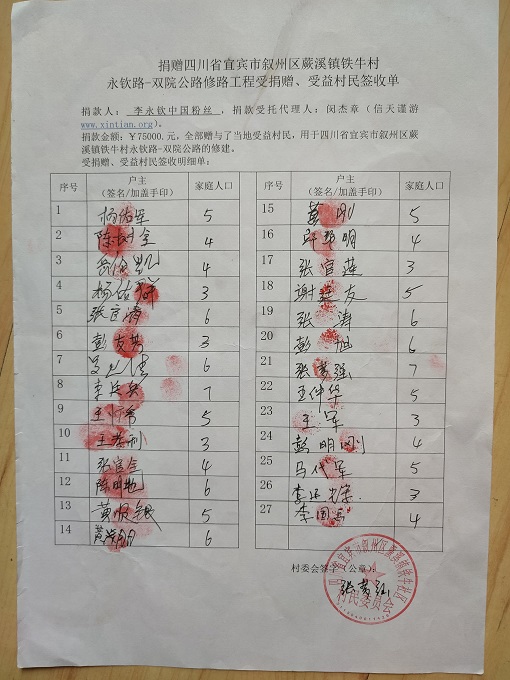 捐赠四川省宜宾市叙州区蕨溪镇铁牛村
永钦路-双院公路修路工程受捐赠、受益村民签收单
捐款人： 李永钦中国粉丝 ，捐款受托代理人：闵杰章（信天谨游
www.xintian.org）。
捐款金额：￥75000.元，全部赠与了当地受益村民，用于四川省宜宾市叙州区蕨
溪镇铁牛村永钦路-双院公路的修建。
受捐赠、受益村民签收明细单：
序号 户主（签名/加盖手印） 家庭人口
1 杨佑军 5
2 陈树全 4
3 凯 4
4 杨佑群 3
5 张官涛 6
6 彭友芳 3
7 6
8 李兵兵 7
9 王 5
10 王 利 3
11 张官金 4
12 陈明艳 6
13 黄顺银 5
14 黄 明 6
序号 户主（签名/加盖手印） 家庭人口
15 彭刚 5
16 明 4
17 张官莲 3
18 谢 友 5
19 张涛 6
20 彭旭 6
21 张 强 7
22 王仲华 5
23 王军 3
24 彭明刚 4
25 马代军 5
26 李 荣 3
27 李国 4
村委会签字（公章）：
张
宜宾市叙州区蕨溪镇铁牛社区
村民委员会